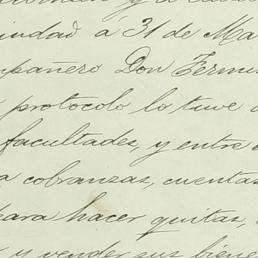 ciudad á 31 de Ma
pañero Don Fermi
protocolo lo tuve
facultades, y entre
a cobranzas, cuentas
para hacer quitas,
y vender sus biene